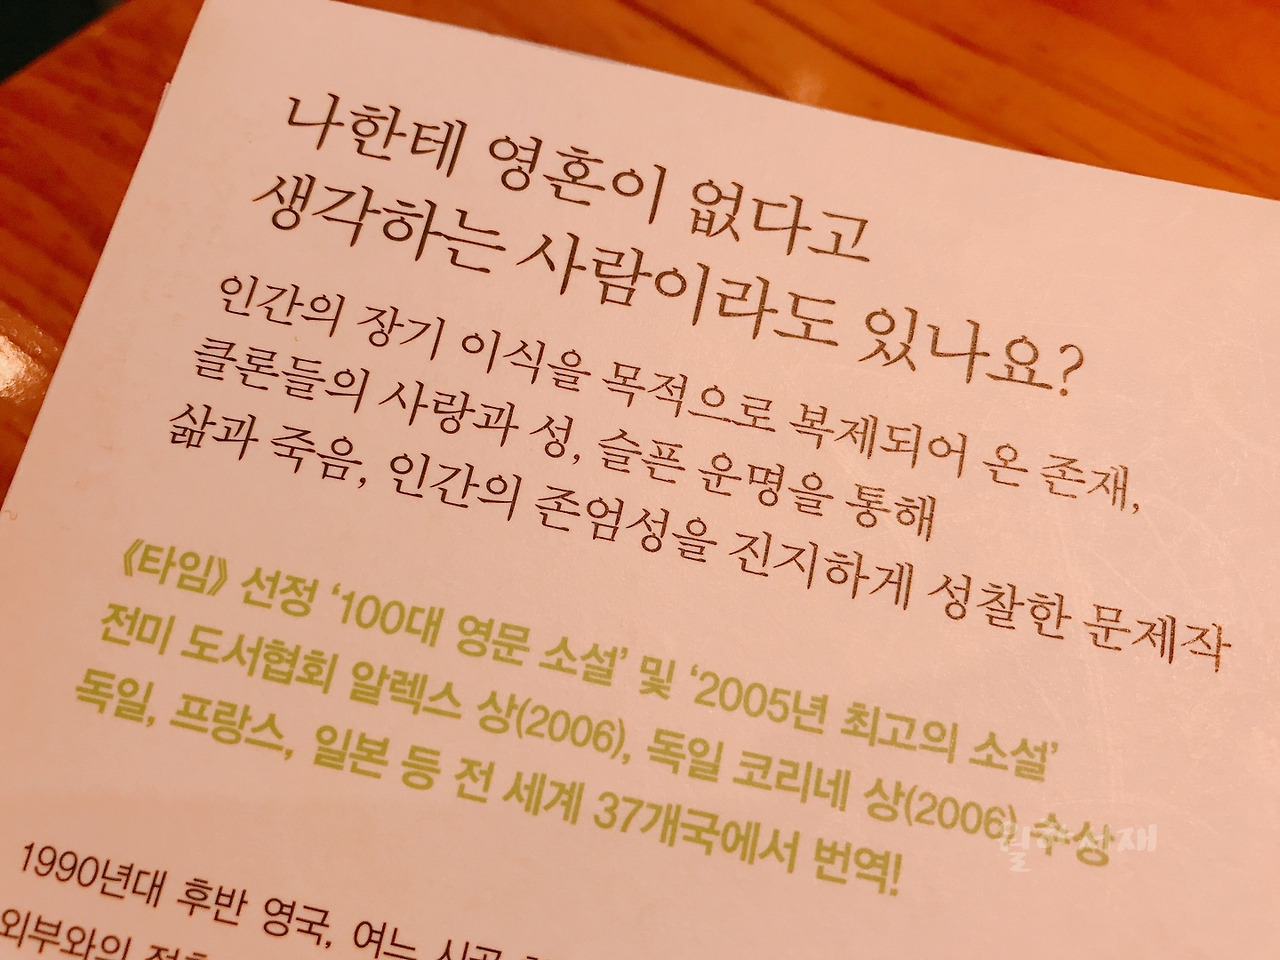 나한테 영혼이 없다고
생각하는 사람이라도 있나요?
인간의 장기 이식을 목적으로 복제되어 온 존재,
클론들의 사랑과 성, 슬픈 운명을 통해
삶과 죽음, 인간의 존엄성을 진지하게 성찰한 문제작
《타임》 선정 ‘100대 영문 소설’ 및 ‘2005년 최고의 소설’
전미 도서협회 알렉스 상(2006), 독일 코리네 상(2006) 수상
독일, 프랑스, 일본 등 전 세계 37개국에서 번역!
1990년대 후반 영국, 여느 시골
외부와의